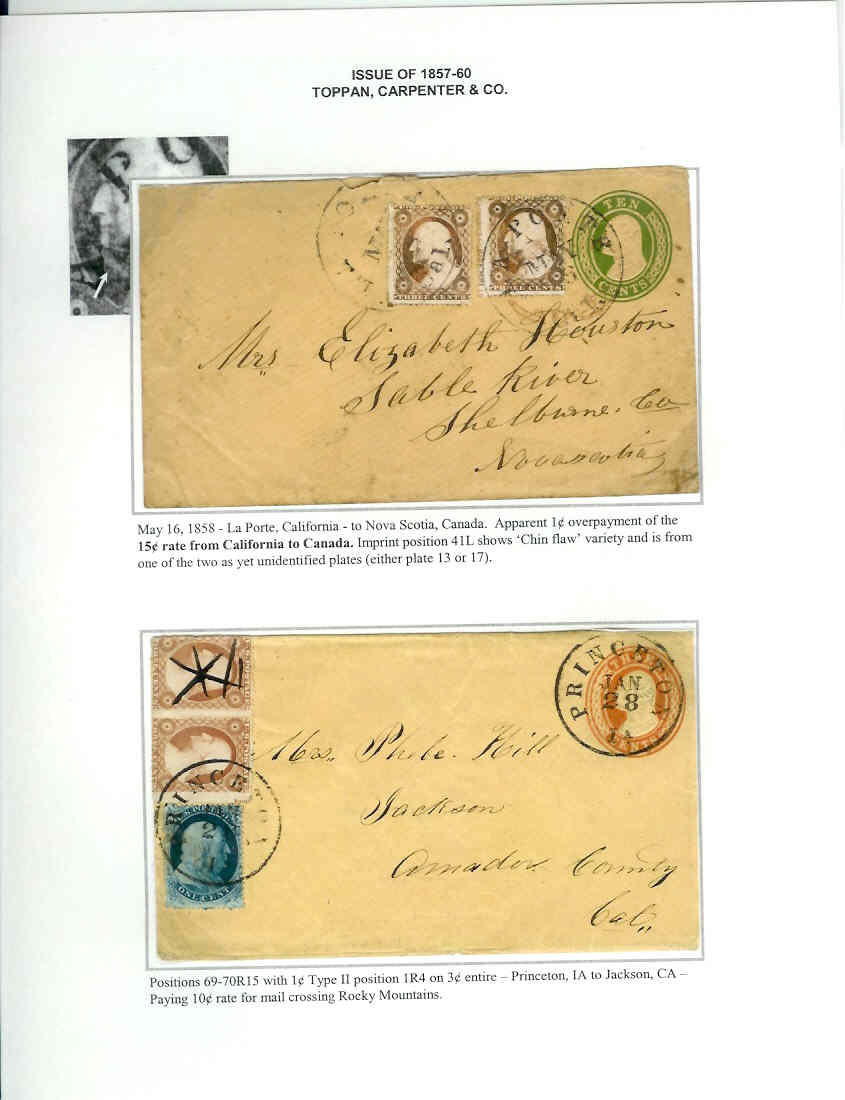 ISSUE OF 1857-60
TOPPAN, CARPENTER & CO.
TEN
CENTS
THREE CENTS
THREE CENTS
Cal.
Mrs Elizabeth Houston
Sable River
Shelburne. Co
Novascotia
May 16, 1858 - La Porte, California - to Nova Scotia, Canada.  Apparent 1¢ overpayment of the
15¢ rate from California to Canada. Imprint position 41L shows ‘Chin flaw’ variety and is from
one of the two as yet unidentified plates (either plate 13 or 17).
PRINCETON
JAN
28
IA
Mrs,, Phebe. Hill
Jackson
Amador County
Cal,,
PRINCETON
ONE CENT
Positions 69-70R15 with 1¢ Type II position 1R4 on 3¢ entire – Princeton, IA to Jackson, CA –
Paying 10¢ rate for mail crossing Rocky Mountains.